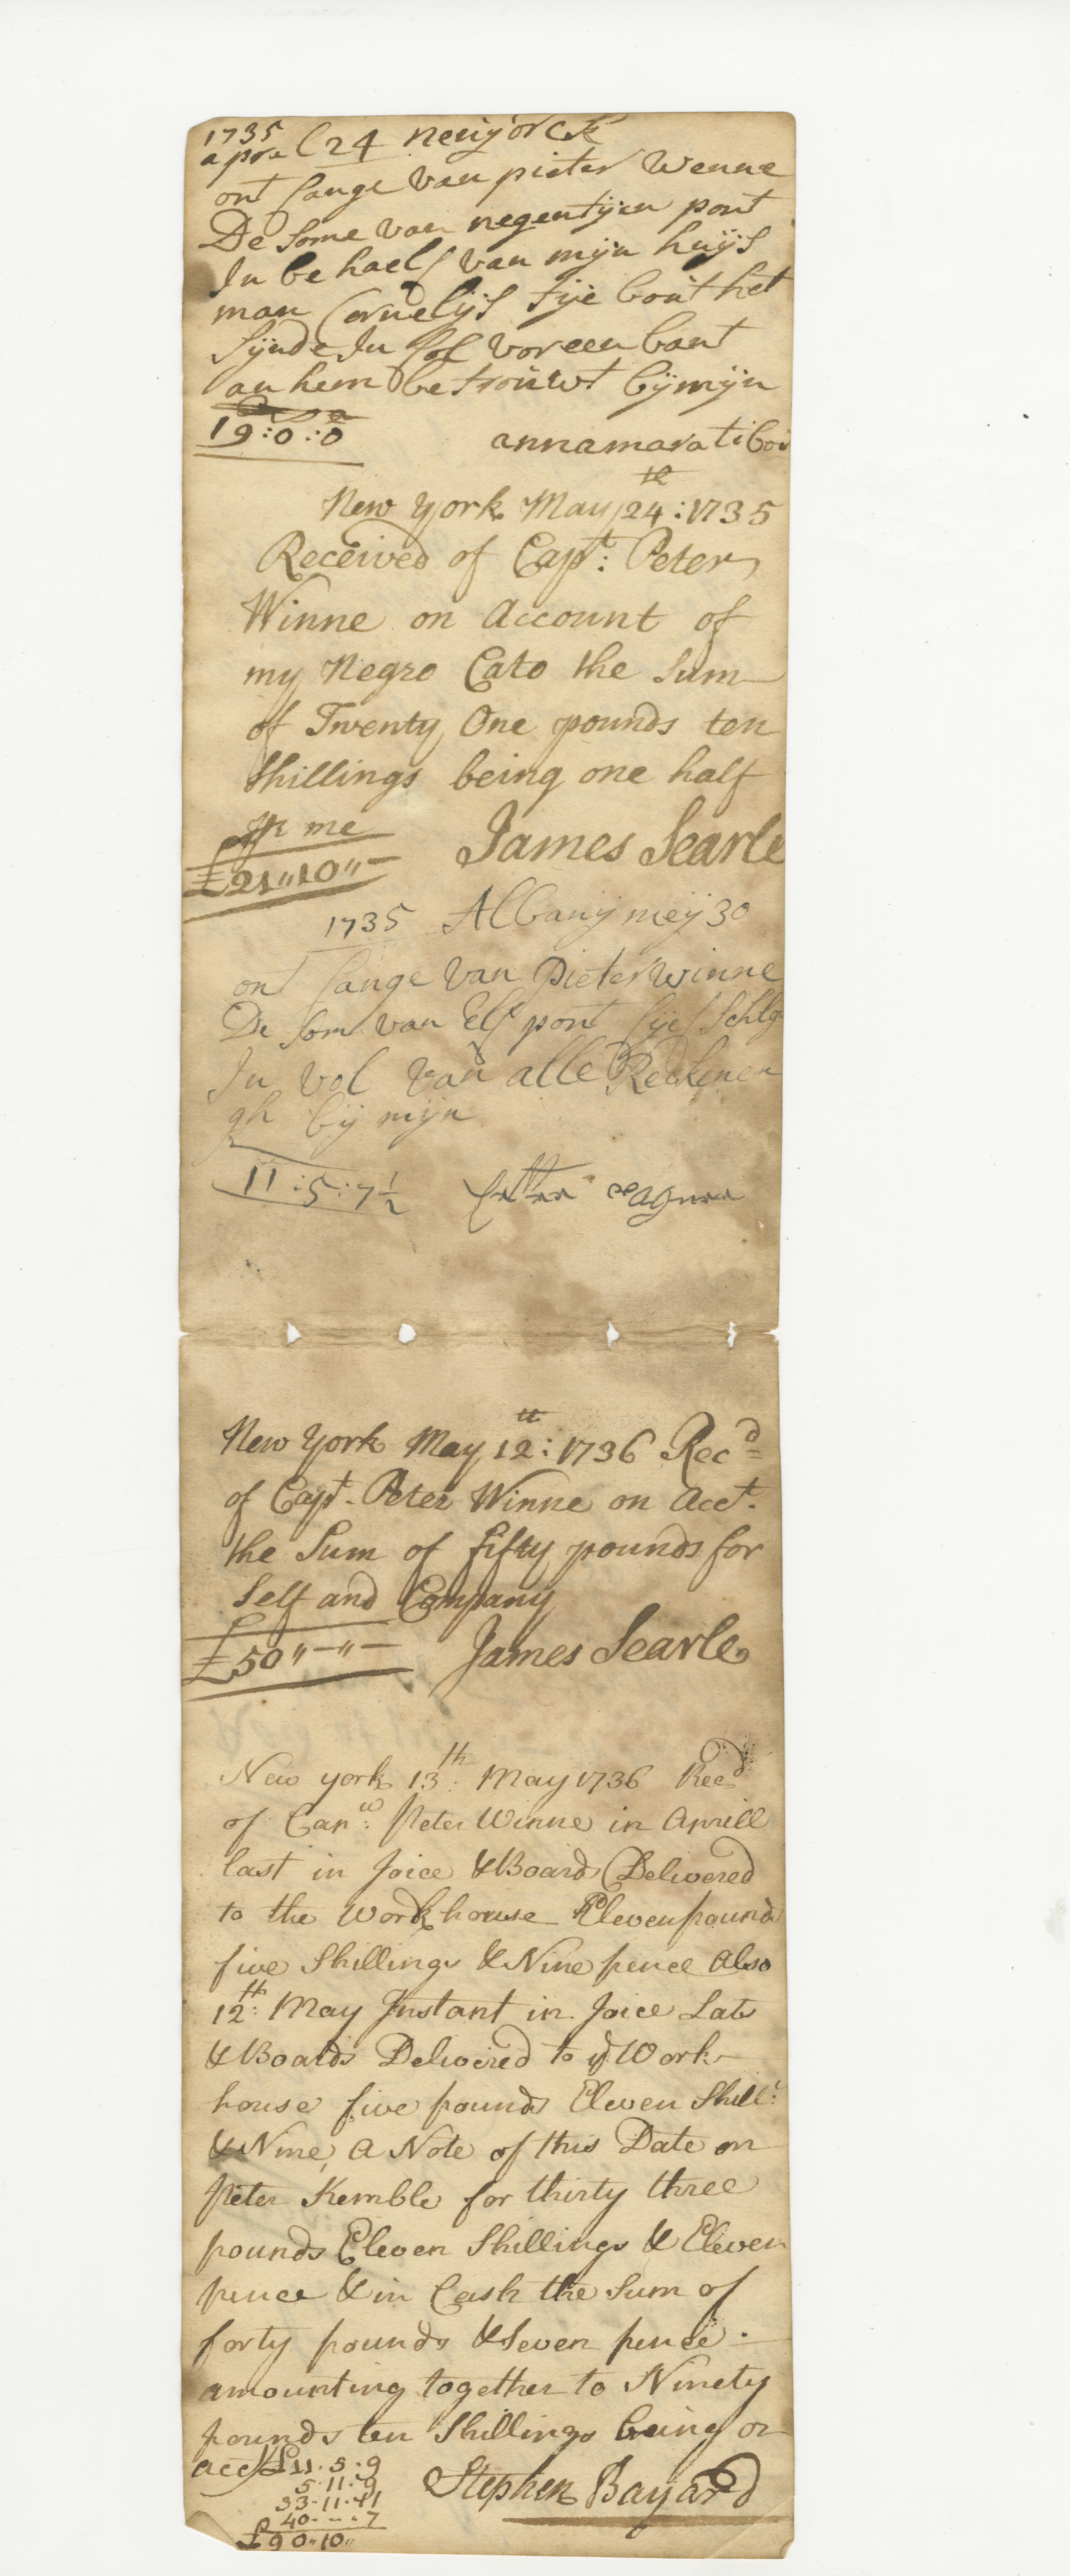 1735
aprel 24 neuyorck
ont fange van pieter Wenne
De Some van negentijen pont
In be haelf van mijn huijs
man Cornelijs tije bout het
Sijnde In fol vor een bant
an hem betrouwt bij mijn
19:0:0 annamara tibou
New York May 24th: 1735
Received of Capt: Peter
Winne on Account of
my Negro Cato the Sum
of Twenty One pounds ten
Shillings being one half
Pr me James Searle
£21"10"-
1735 Albanij meij 30
ont fange van pieter winne
De Som van Elf pont vijf Schlg
In vol van alle Reckenen
gh bij mijn
11:5:7½
New York May 12th: 1736 Recd
of Capt. Peter Winne on Acct.
the Sum of fifty pounds for
Self and Company
£50"-"- James Searle
New york 13th: May 1736 Recd
of Capn: Peter Winne in Aprill
last in Joice & Boards Delivered
to the Workhouse Eleven pounds
five Shillings & Nine pence Also
12th: May Instant in Joice Lats
& Boards Delivered to ye Work
house five pounds Eleven Shill:
& Nine, A Note of this Date on
Peter Kemble for thirty three
pounds Eleven Shillings & Eleven
pence & in Cash the Sum of
forty pounds & Seven pence.
amounting together to Ninety
pounds ten Shillings being on
acct £11.5.9
5.11.9
33.11.11
40.--.7 Stephen Bayard
£90"10"